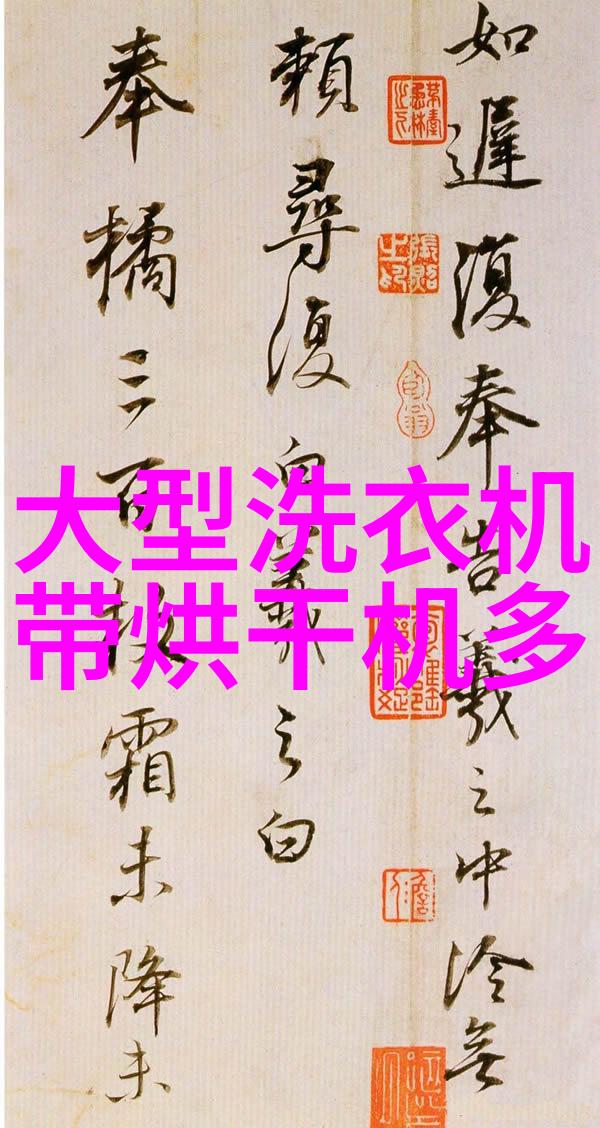 如遲復奉告羲之中冷無
賴尋復白羲之白
奉橘三百枚霜未降未
大型洗衣机
带烘干机多